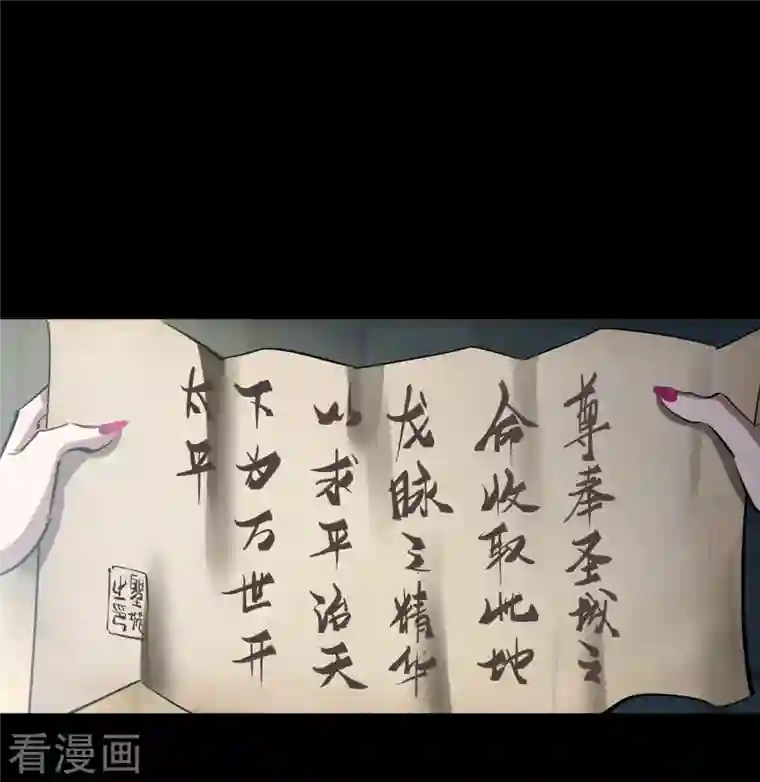 尊奉圣城之
命收取此地
龙脉之精华
以求平治天
下为万世开
太平
看漫画